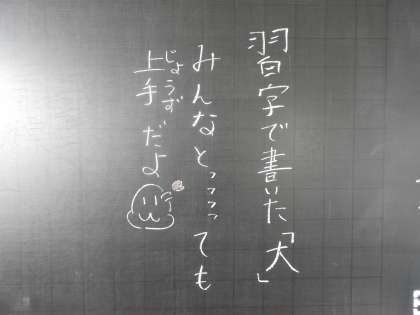 習字で書いた「犬」
みんなとっっっっても
上手だよ
じょうず